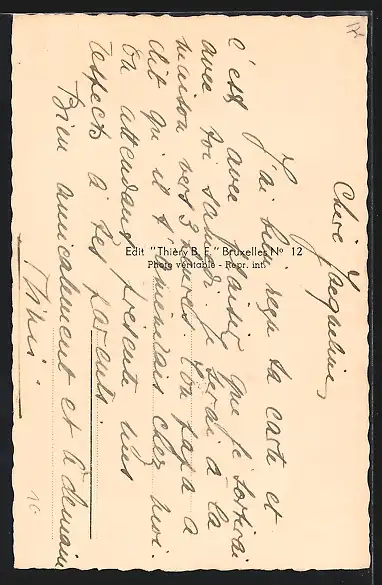 Chère Jacqueline,
J'ai bien reçu ta carte et
c'est avec plaisir que je sortirai
avec toi samedi. Je serai à la
maison vers 3 heures. Ton papa a
dit qu'il t' chez moi.
En attendant présente mes
respects à tes parents.
Bien amicalement et à demain
Edit "Thièry B. F." Bruxelles N° 12
Photo véritable - Repr. int.
10